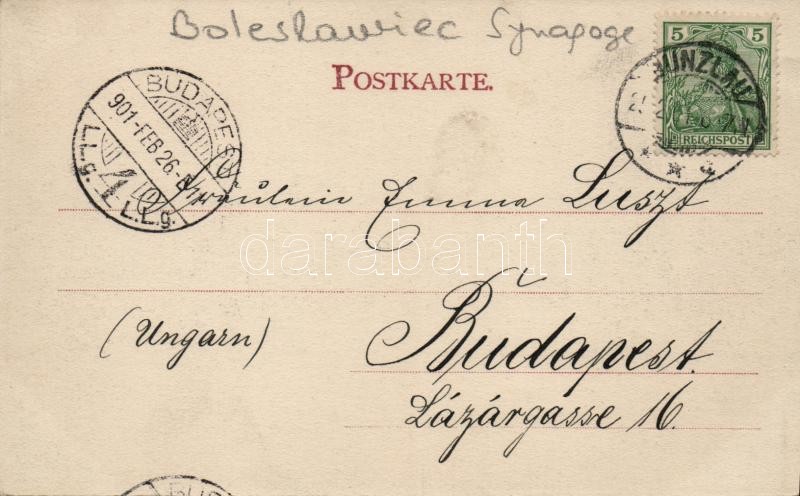 Boleslawiec Synagoge
POSTKARTE.
5 5
REICHSPOST
BUNZLAU
BUDAPEST
901-FEB 26.
Fräulein Emma Luszt
darabanth
(Ungarn)
Budapest.
Lázárgasse 16.